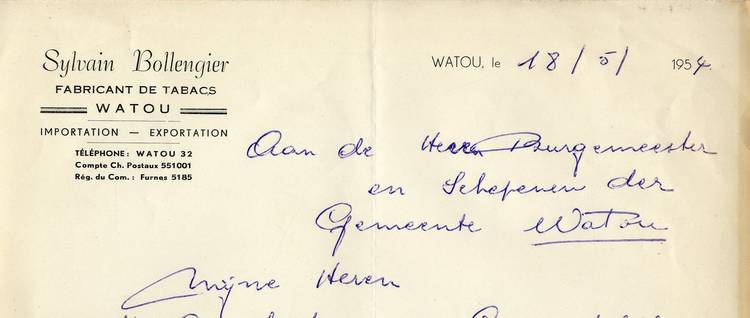 Sylvain Bollengier
FABRICANT DE TABACS
WATOU
IMPORTATION — EXPORTATION
TÉLÉPHONE: WATOU 32
Compte Ch. Postaux 551001
Rég. du Com.: Furnes 5185
WATOU, le 18/5/ 1954.
Aan de Heren Burgemeester
en Schepenen der
Gemeente Watou
Mijne Heren